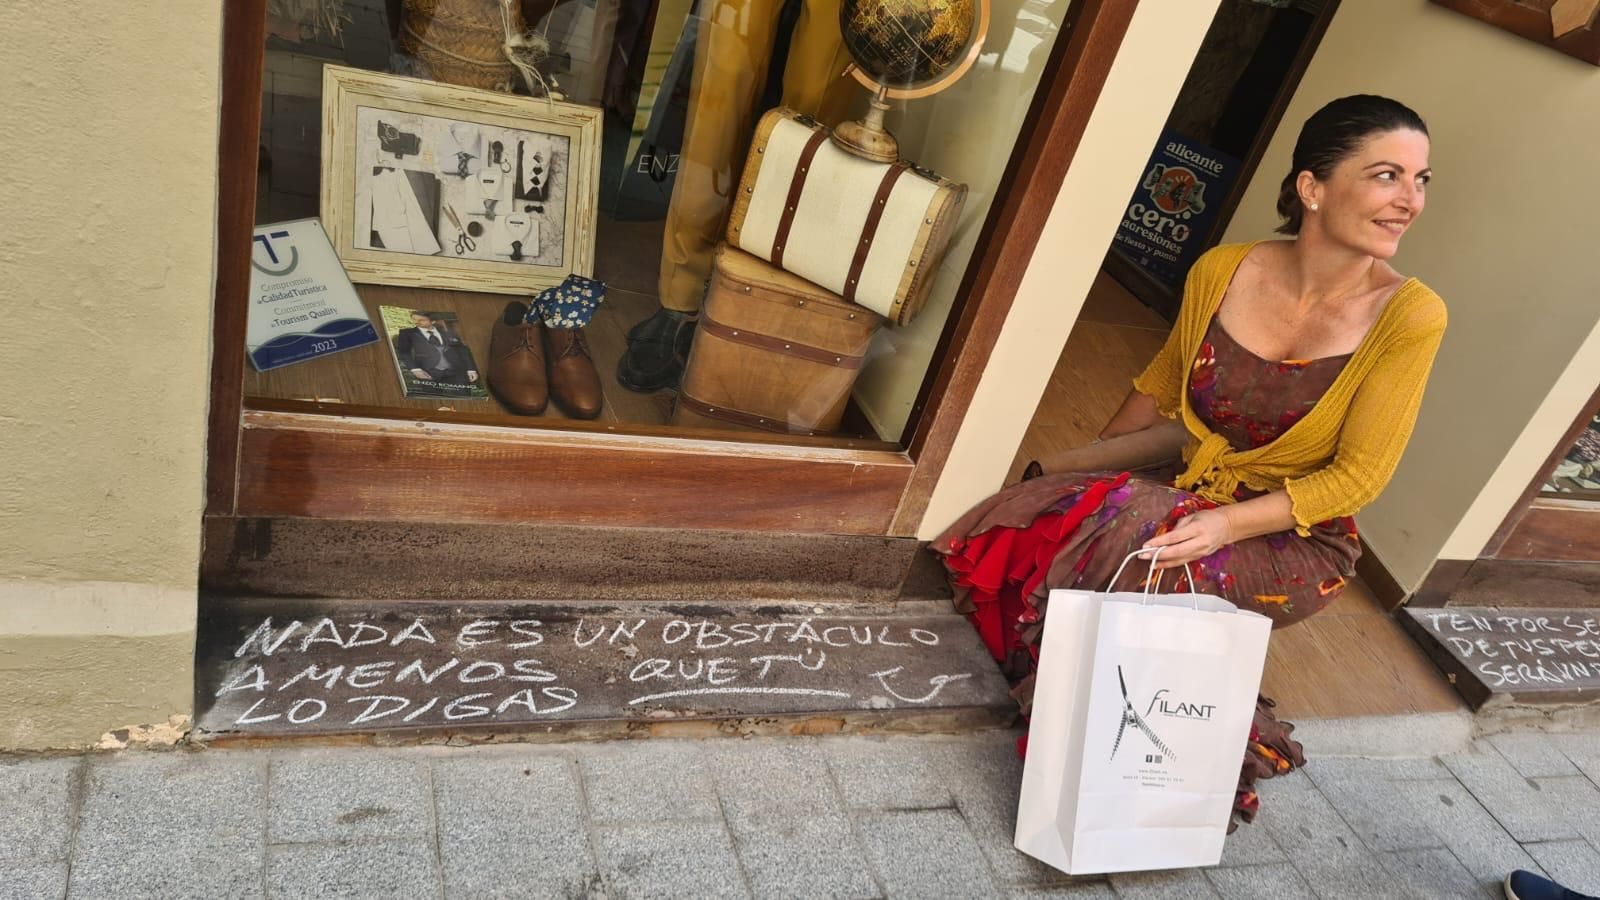 NADA ES UN OBSTÁCULO
A MENOS QUE TÚ
LO DIGAS
TEN POR SE
DE TUS PE
SERÁ UN
Compromiso
Calidad Turística
Commitment
Tourism Quality
2023
ENZO ROMANO
ENZ
alicante
cero
agresiones
de fiesta y punto
FILANT